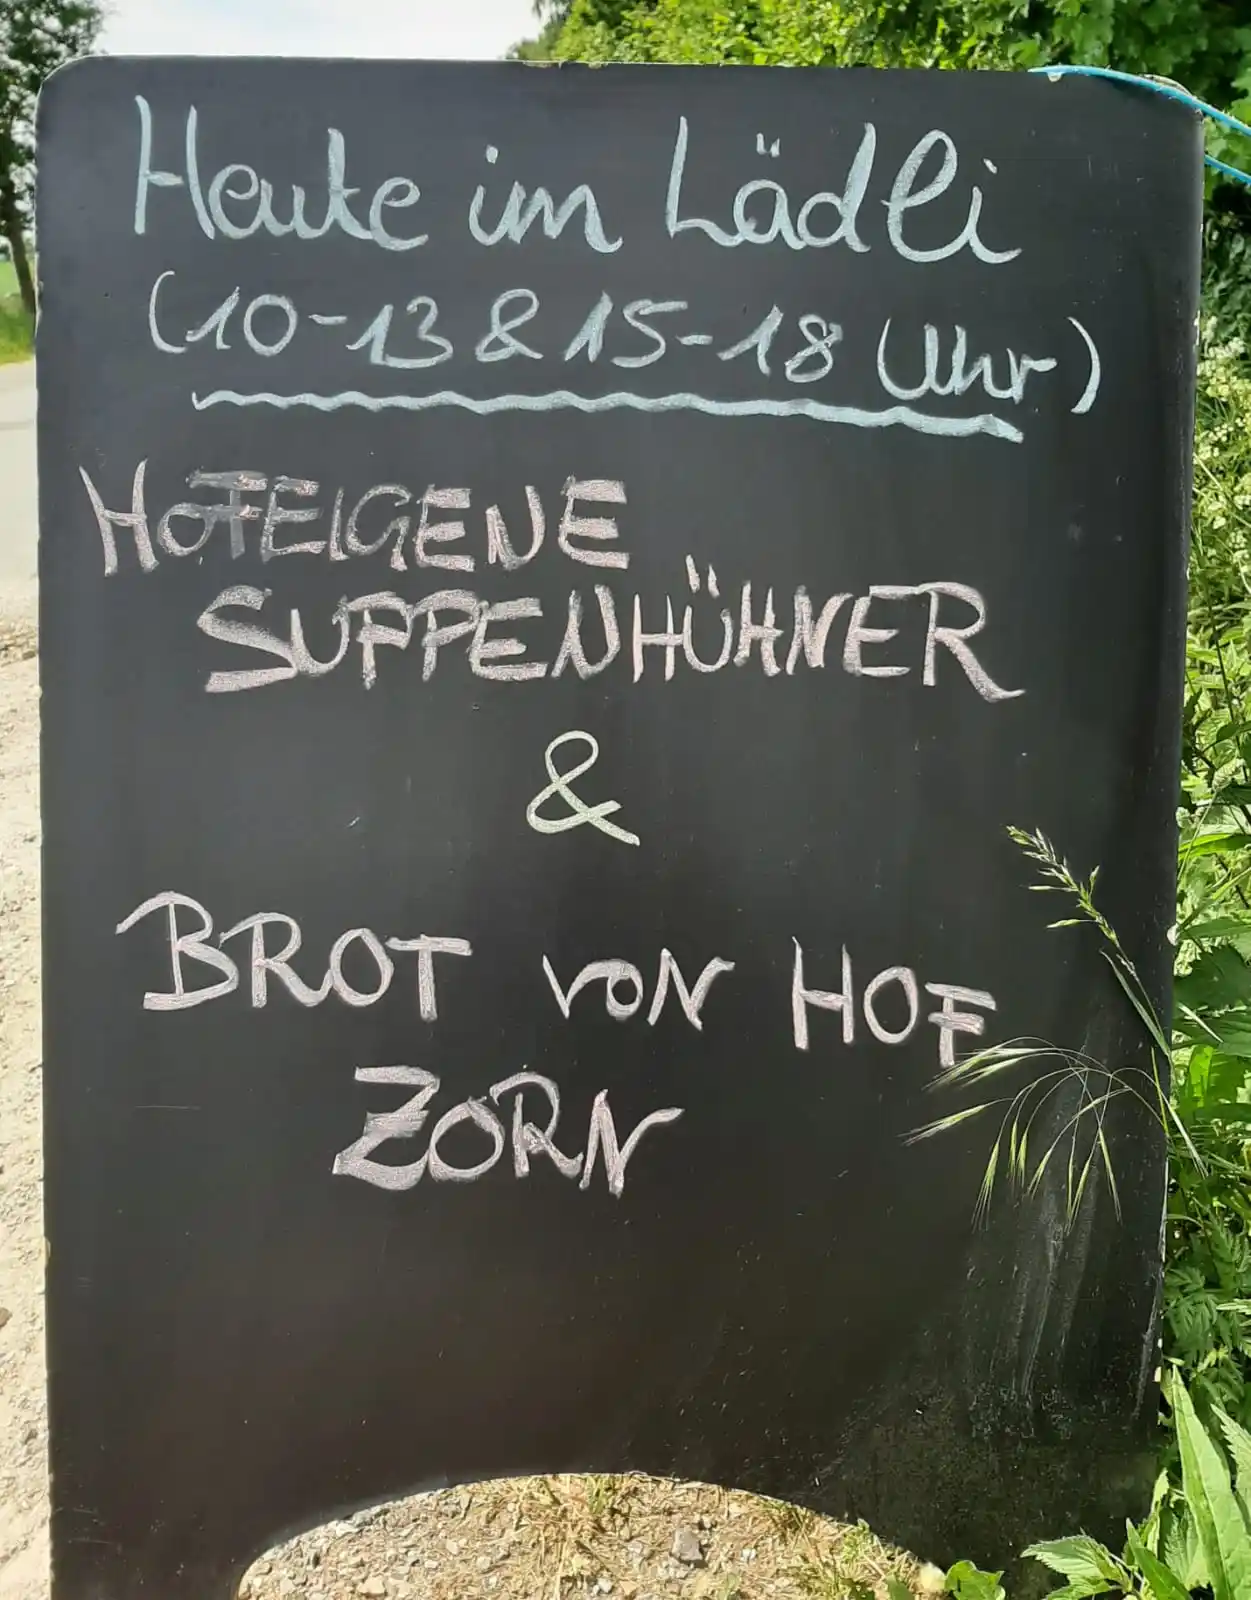 Heute im Lädli
(10-13 & 15-18 Uhr)
HOFEIGENE
SUPPENHÜHNER
&
BROT VON HOF
ZORN